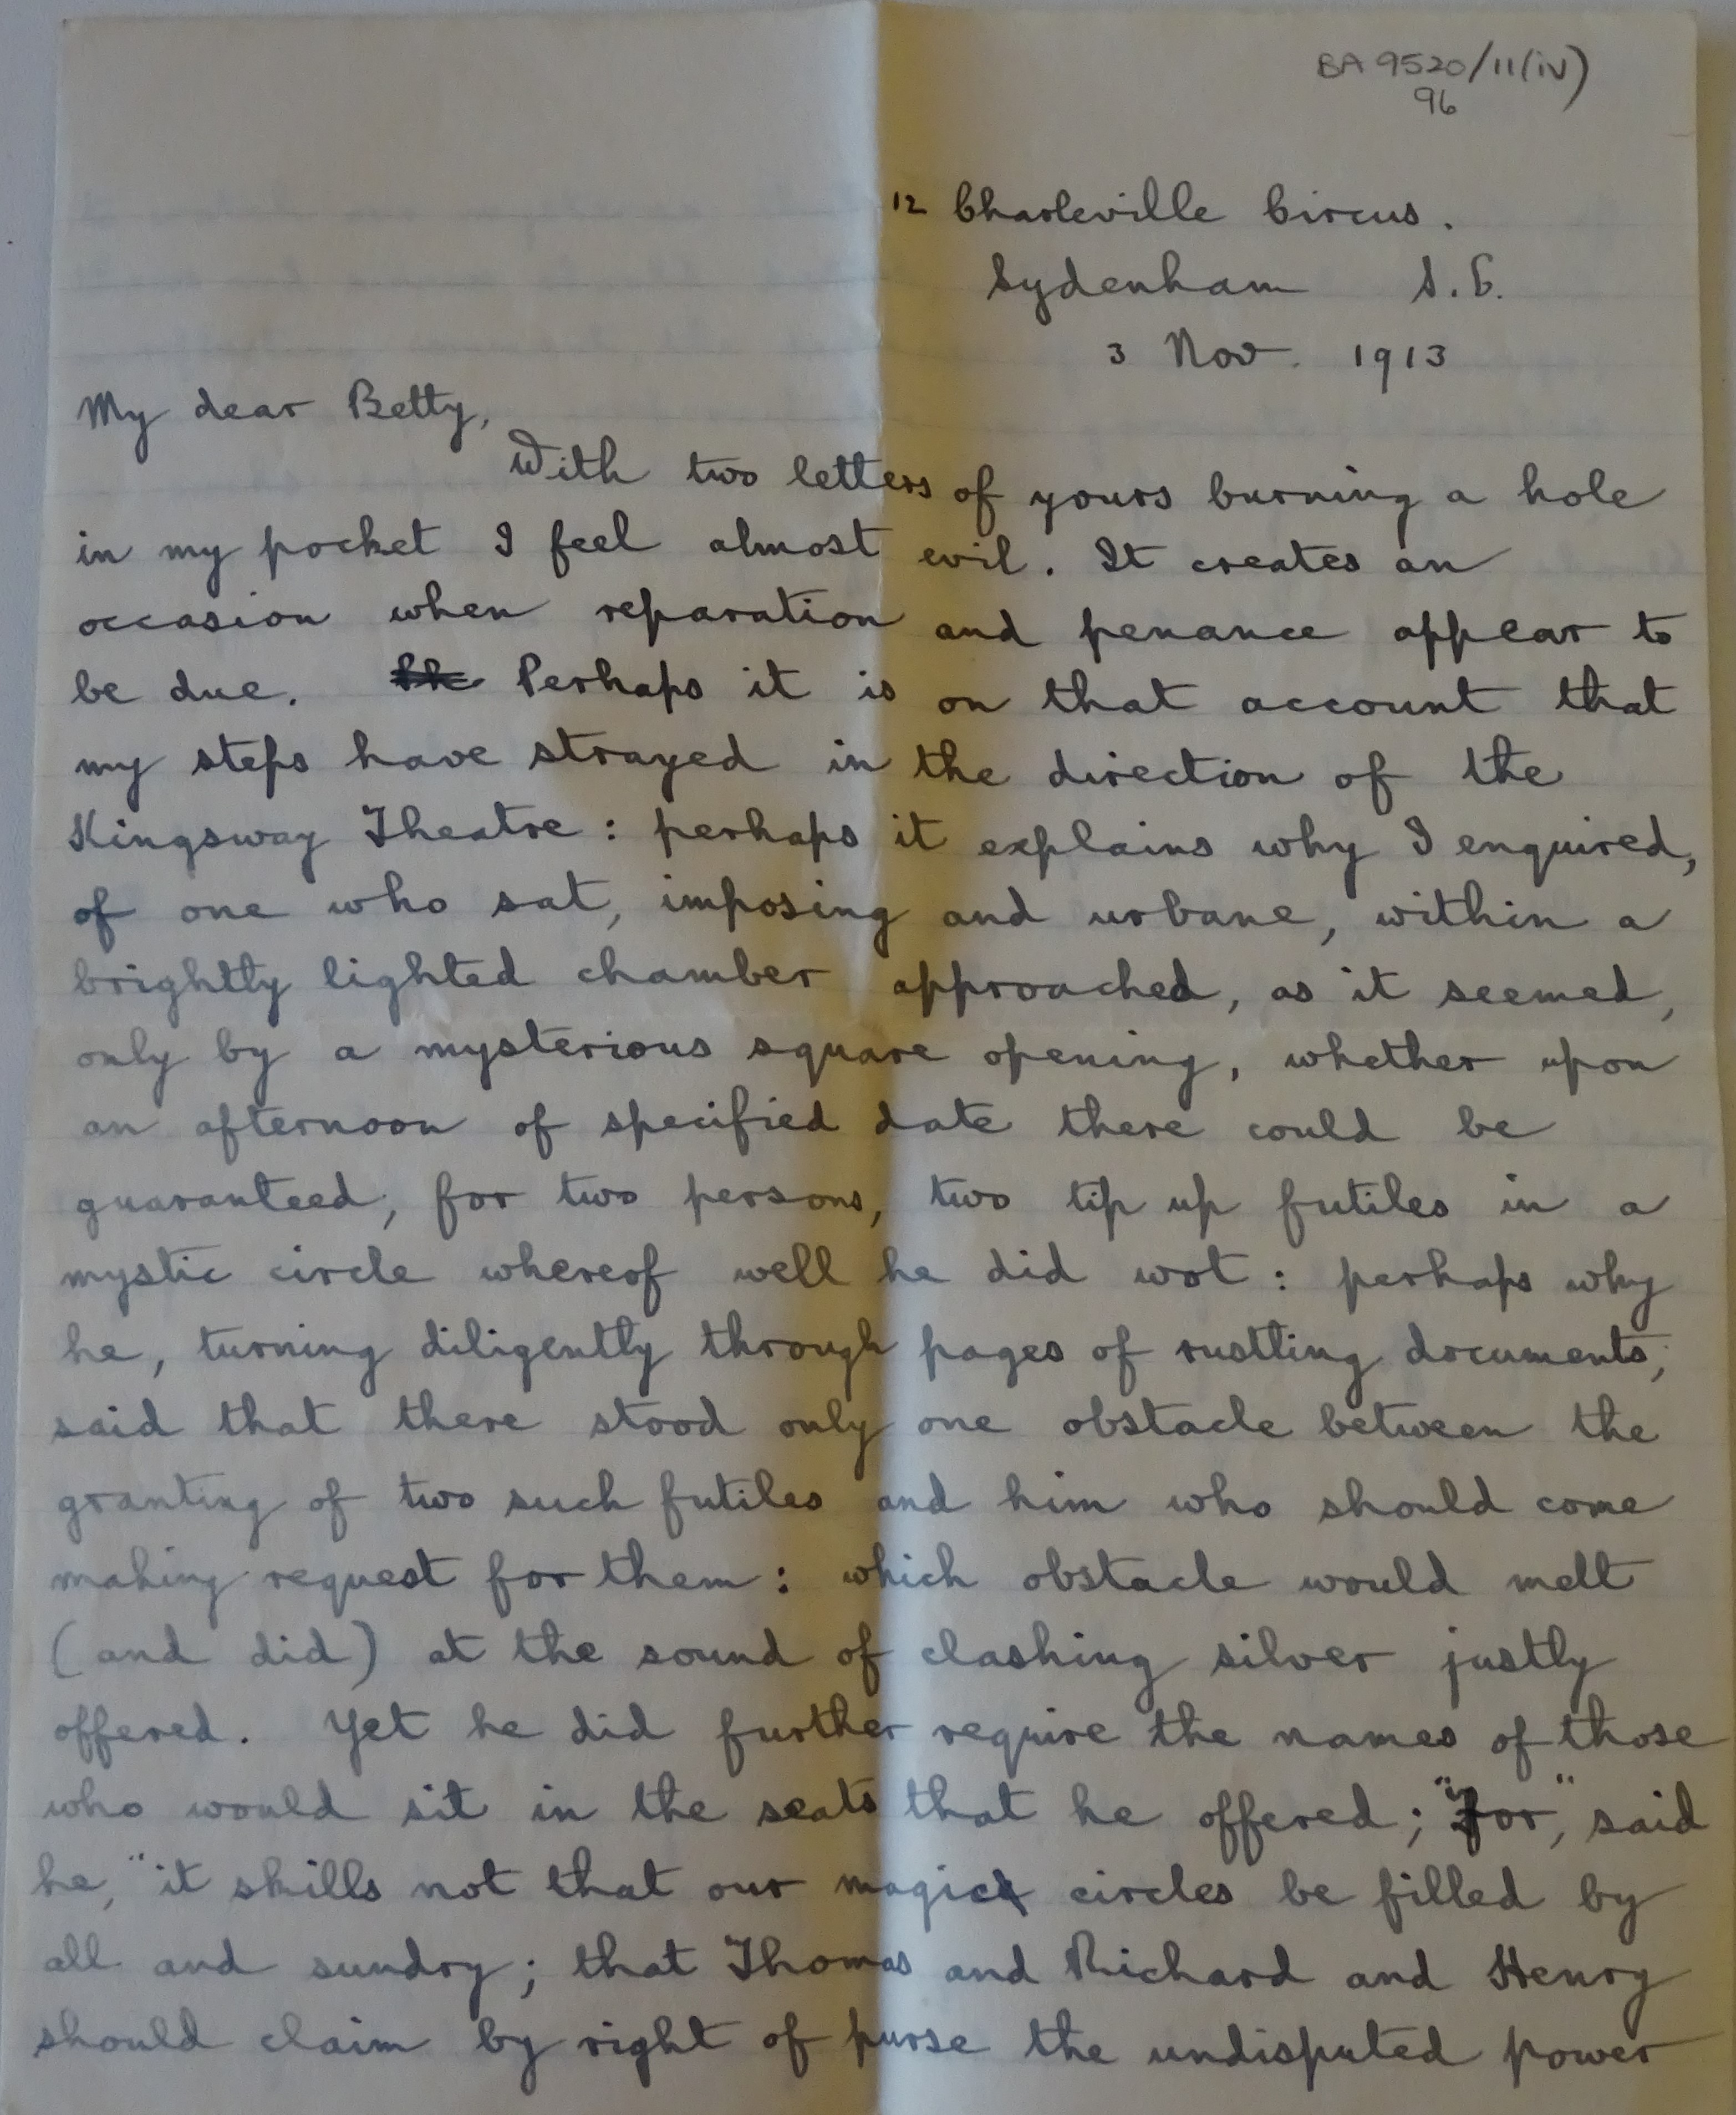 BA 9520/11(iv)
96
12 Charleville Circus.
Sydenham S.E.
3 Nov. 1913
My dear Betty,
With two letters of yours burning a hole
in my pocket I feel almost evil. It creates an
occasion when reparation and penance appear to
be due. Perhaps it is on that account that
my steps have strayed in the direction of the
Kingsway Theatre: perhaps it explains why I enquired,
of one who sat, imposing and urbane, within a
brightly lighted chamber approached, as it seemed,
only by a mysterious square opening, whether upon
an afternoon of specified date there could be
guaranteed, for two persons, two tip up futiles in a
mystic circle whereof well he did wot: perhaps why
he, turning diligently through pages of rustling documents,
said that there stood only one obstacle between the
granting of two such futiles and him who should come
making request for them: which obstacle would melt
(and did) at the sound of clashing silver justly
offered. Yet he did further require the names of those
who would sit in the seats that he offered; "for", said
he, "it skills not that our magic circles be filled by
all and sundry; that Thomas and Richard and Henry
should claim by right of purse the undisputed power